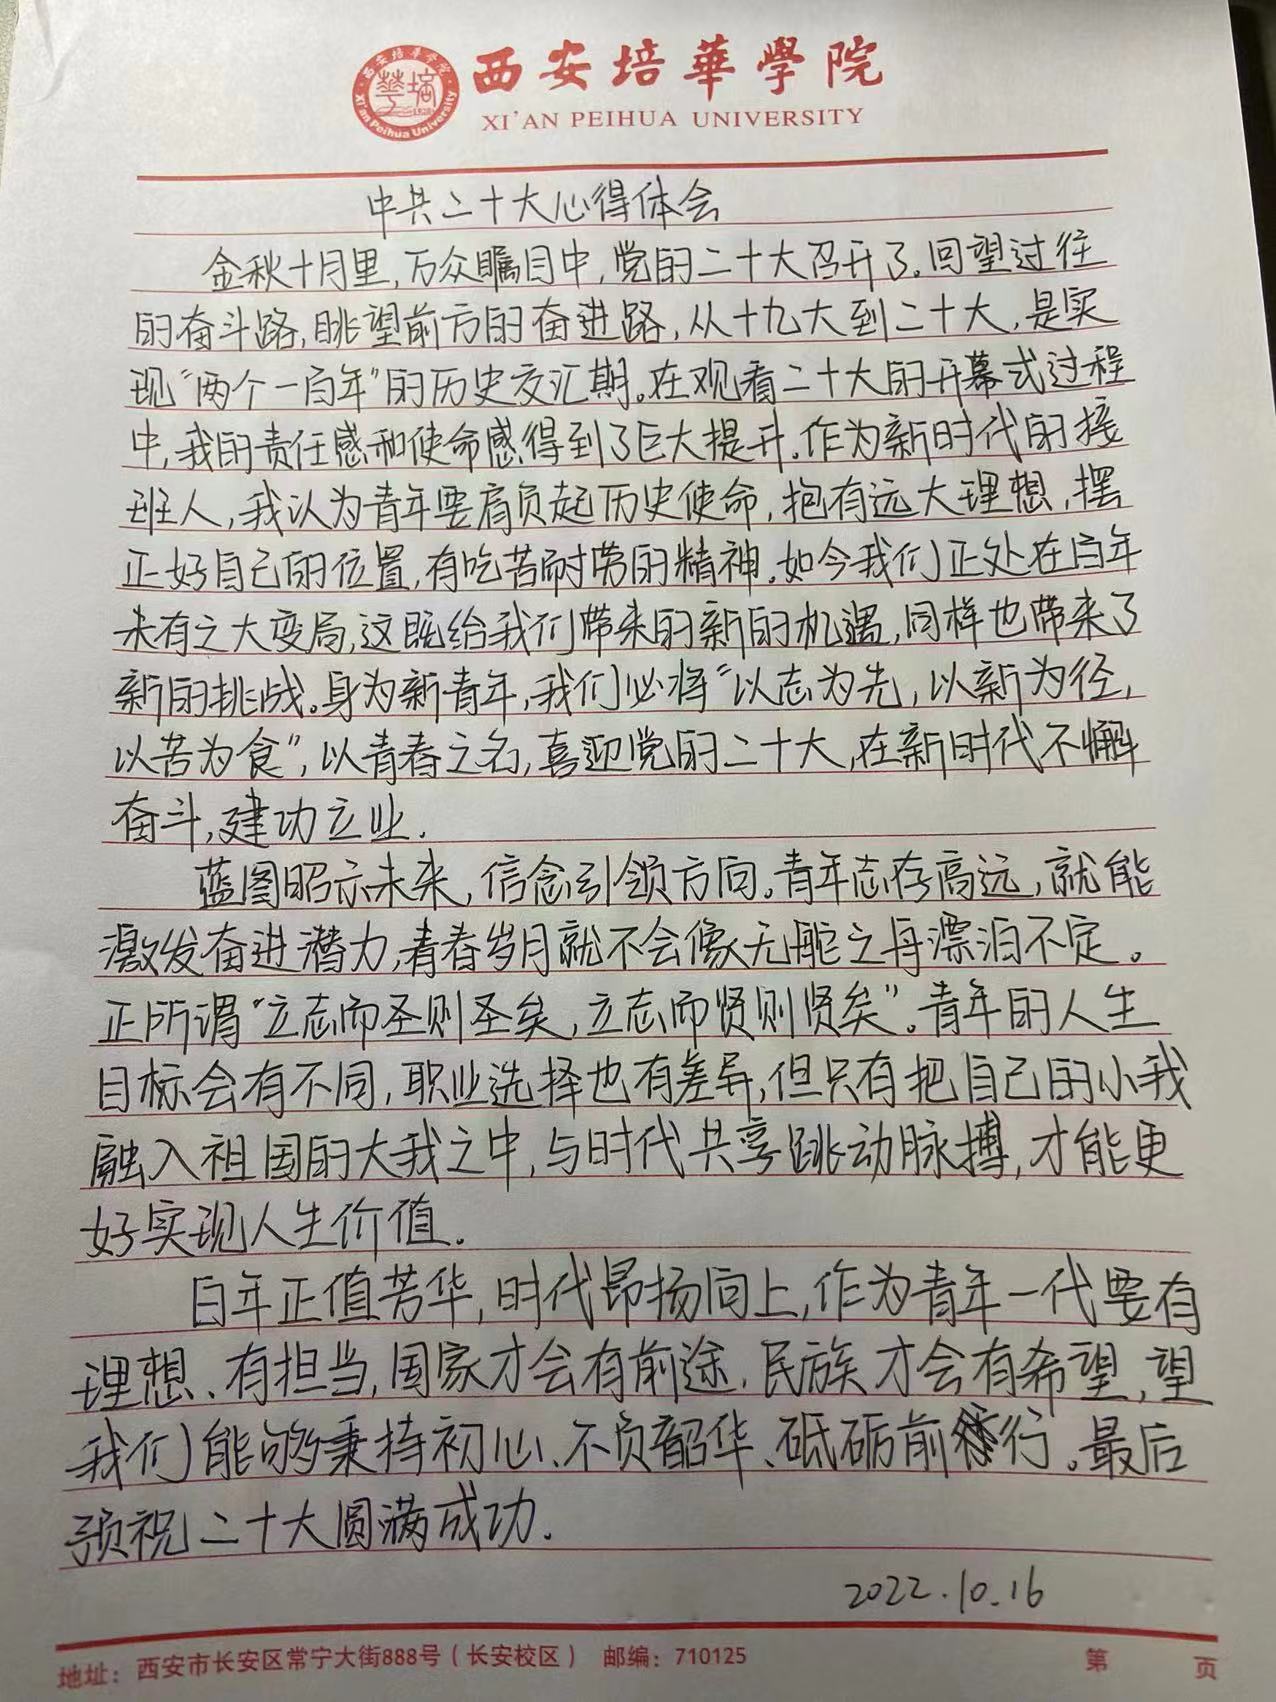 西安培華學院
XI'AN PEIHUA UNIVERSITY
西安培华学院
Xi'an Peihua University
中共二十大心得体会
金秋十月里,万众瞩目中,党的二十大召开了。回望过往
的奋斗路,眺望前方的奋进路,从十九大到二十大,是实
现“两个一百年”的历史交汇期。在观看二十大的开幕式过程
中,我的责任感和使命感得到了巨大提升.作为新时代的接
班人,我认为青年要肩负起历史使命,抱有远大理想,摆
正好自己的位置,有吃苦耐劳的精神.如今我们正处在百年
未有之大变局,这既给我们带来的新的机遇,同样也带来了
新的挑战。身为新青年,我们必将“以志为先,以新为径,
以苦为食”,以青春之名,喜迎党的二十大,在新时代不懈
奋斗,建功立业.
蓝图昭示未来,信念引领方向。青年志存高远,就能
激发奋进潜力,青春岁月就不会像无舵之舟漂泊不定。
正所谓“立志而圣则圣矣,立志而贤则贤矣”。青年的人生
目标会有不同,职业选择也有差异,但只有把自己的小我
融入祖国的大我之中,与时代共鸣跳动脉搏,才能更
好实现人生价值.
百年正值芳华,时代昂扬向上,作为青年一代要有
理想、有担当,国家才会有前途,民族才会有希望,望
我们能够秉持初心、不负韶华、砥砺前行。最后
预祝二十大圆满成功.
2022.10.16
地址:西安市长安区常宁大街888号(长安校区) 邮编:710125 第 页